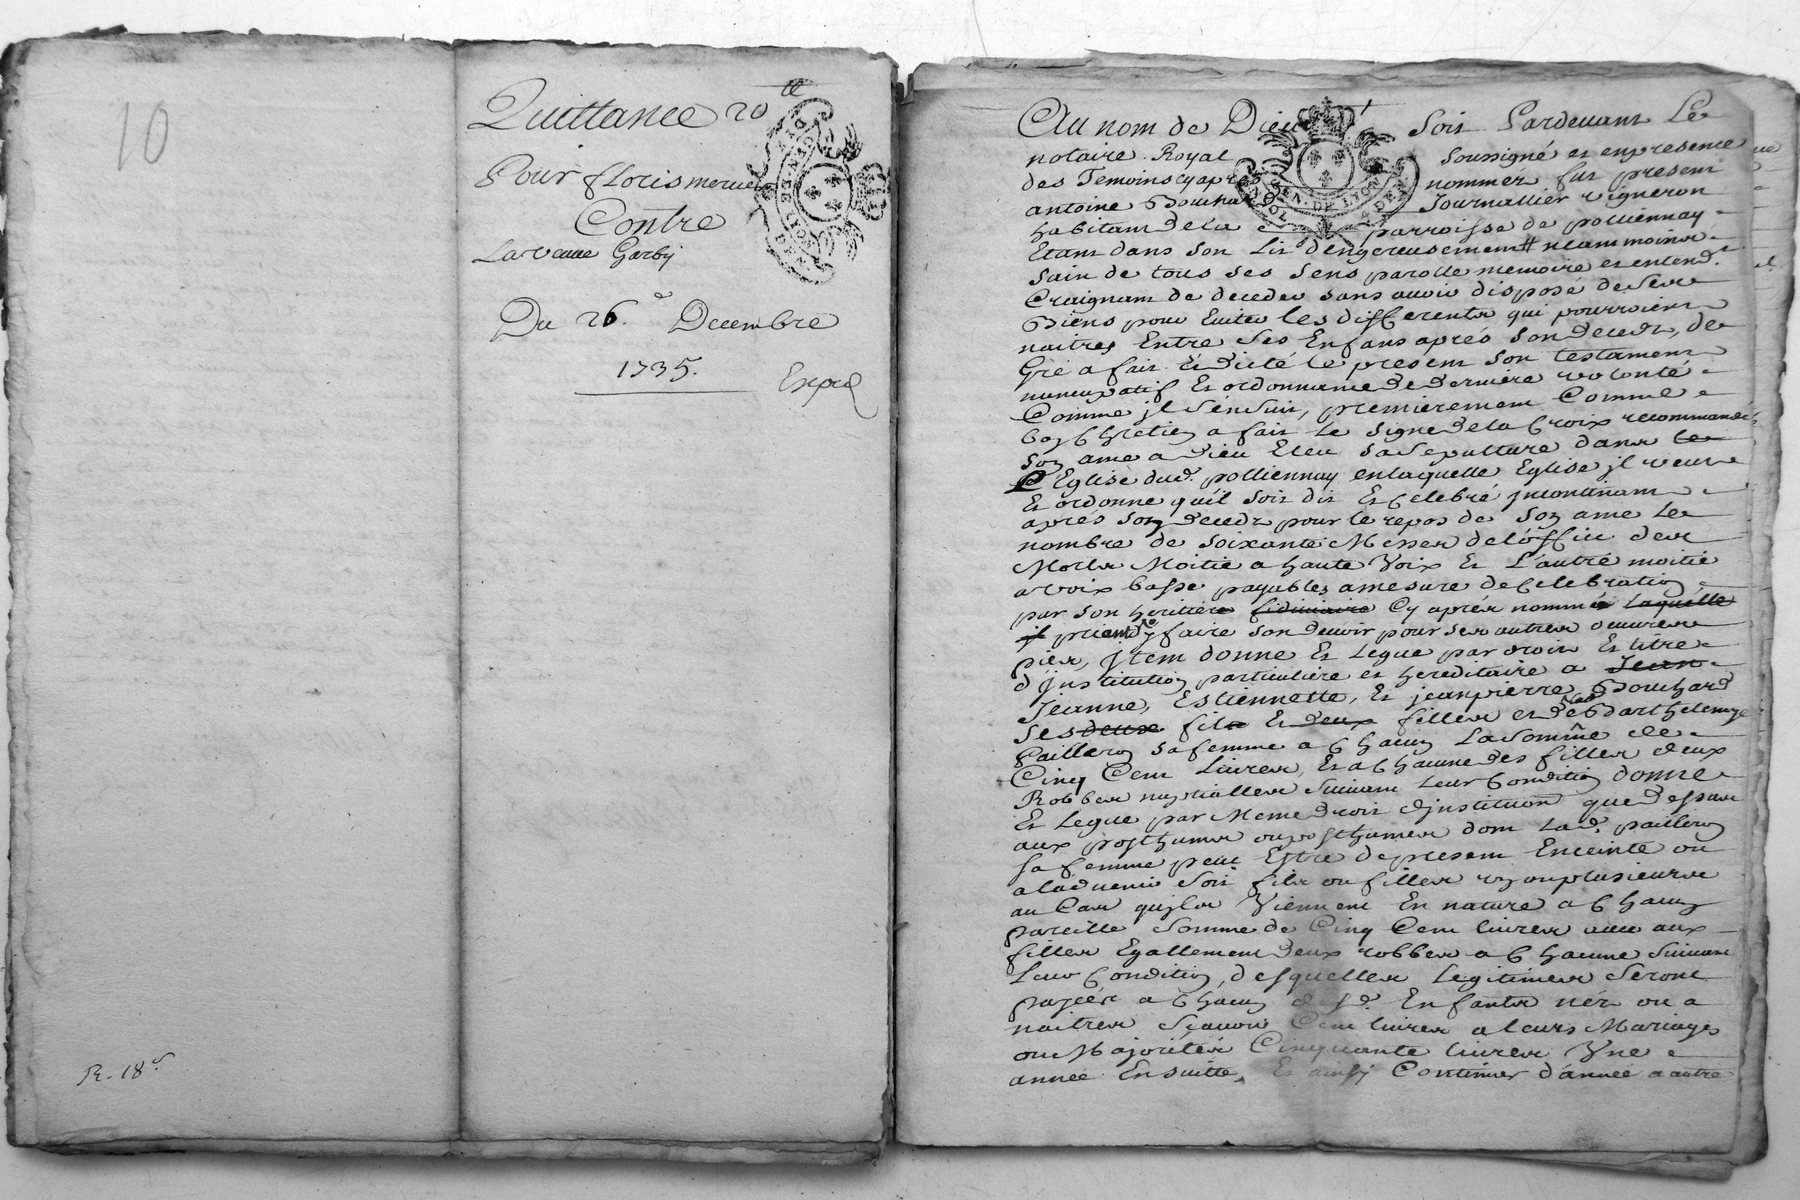 10
Quittance 20 tt
Pour fLoris mercier
Contre
La veauue Garby
Du 26.e Decembre
1735.
Exped
R. 18 s
GEN. DE LYON
Au nom de Dieu Soit Pardeuant Le
notaire Royal soussigné et en presence
des Temoins cy apres nommer fut present
antoine Bouchard Journallier vigneron
habitant de la parroisse de polliennay
Etant dans son Lit dengereusement # neammoins
sain de tous ses sens parolle memoire et entend.t
Craignant de deceder sans auoir disposé de ses
Biens pour Euiter les differents qui pourroient
naitres Entre ses Enfans aprés son decedz, de
Gré a fait Et dicté le present son testament
nuncupatif Et ordonnance de derniere volonté
Comme jl s'ensuit, premierement Comme
bon Chretien a fait le signe de la Croix recommandé
son ame a Dieu Eleu sa sepulture dans le
L'Eglise dud. polliennay en laquelle Eglise jl veut
Et ordonne qu'il soit dit Et Celebré jncontinant
apres son decedz pour le repos de son ame le
nombre de soixante Messes de l'office des
Morts Moitié a haute Voix Et L'autre moitié
a voix basse payables a mesure de Celebration
par son heritiere fiduciaire Cy aprés nommé laquelle
jl priant d'y faire son deuoir pour ses autres oeuures
pies, Jtem donne Et Legue par droit Et titre
d'jnstitution particuliere et hereditaire a Jean
Jeanne, Estiennette, Et jeanpierre Bouchard
ses deux fils Et deux filles et de Barthelemye
Pailleron sa femme a Chacun La somme de
Cinq Cent Liures, Et a Chacune des filles deux
Robbes nuptialles suiuant leur Condition donne
Et Legue par Meme droit d'jnstitution que dessus
aux posthumes ou posthumes dont lad. pailleron
sa femme peut Estre de present Enceinte ou
a laduenir soit fils ou filles un ou plusieurs
au Cas qu'ils Viennent En nature a Chacun
pareille somme de Cinq Cent liures auec aux
filles Egallement deux robbes a Chacune suiuant
leur Condition, desquelles Legitimes seront
payées a Chacun desd. Enfants nés ou a
naitres sçauoir Cent liures a leurs Mariages
ou Majorités Cinquante liures Vne
année Ensuitte, Et ainsy Continuer d'année a autre